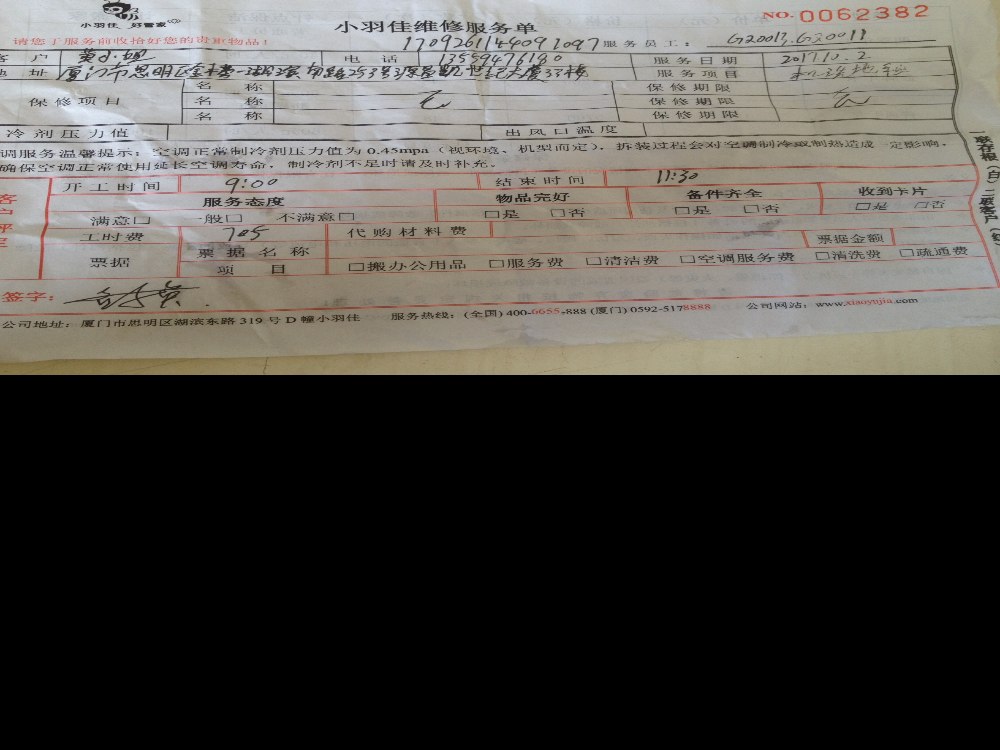 小羽佳 好管家
小羽佳维修服务单
NO. 0062382
请您了服务前收拾好您的贵重物品!
170926114409 1097 服务员工: G20017.G20011
客户 黄小姐 电话 13559476180 服务日期 2017.10.2
地址 厦门市思明区 湖滨南路253号源昌凯 世纪大厦 服务项目
保修项目 名称 无 保修期限 无
名称 保修期限
名称 保修期限
冷剂压力值 出风口温度
调服务温馨提示: 空调正常制冷剂压力值为 0.45mpa (视环境、机型而定), 拆装过程会对空调制冷或制热造成一定影响,
确保空调正常使用延长空调寿命, 制冷剂不足时请及时补充。
开工时间 9:00 结束时间 11:30
服务态度 物品完好 备件齐全 收到卡片
满意□ 一般□ 不满意□ □是 □否 □是 □否 □是 □否
工时费 705 代购材料费 票据金额
票据 票据名称
项目 □搬办公用品 □服务费 □清洁费 □空调服务费 □清洗费 □疏通费
签字:
公司地址: 厦门市思明区湖滨东路 319 号 D 幢小羽佳 服务热线: (全国) 400-6655-888 (厦门) 0592-5178888 公司网站: www.xiaoyujia.com